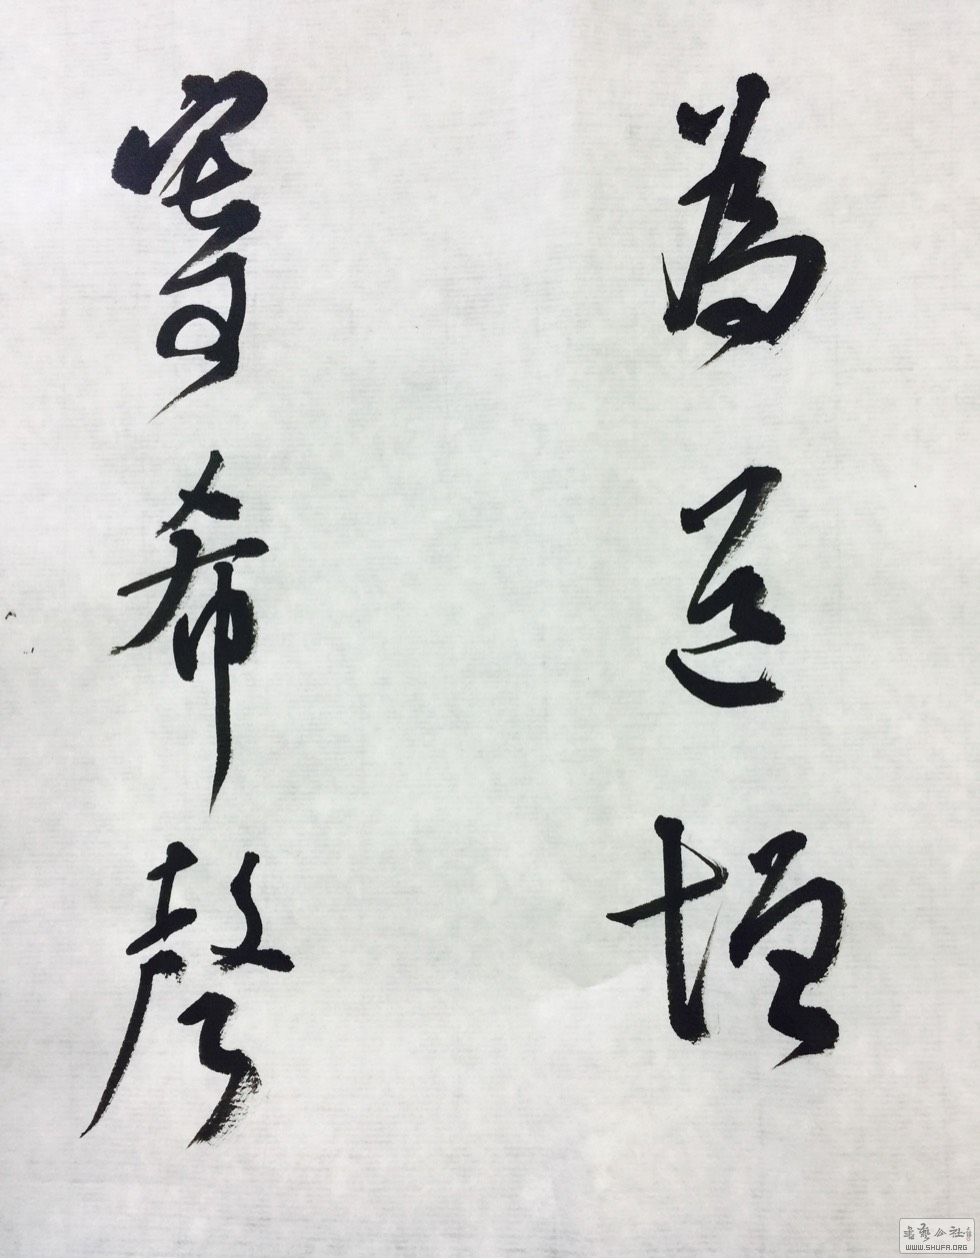 為道恒
寄希聲
書藝公社
WWW.SHUFA.ORG